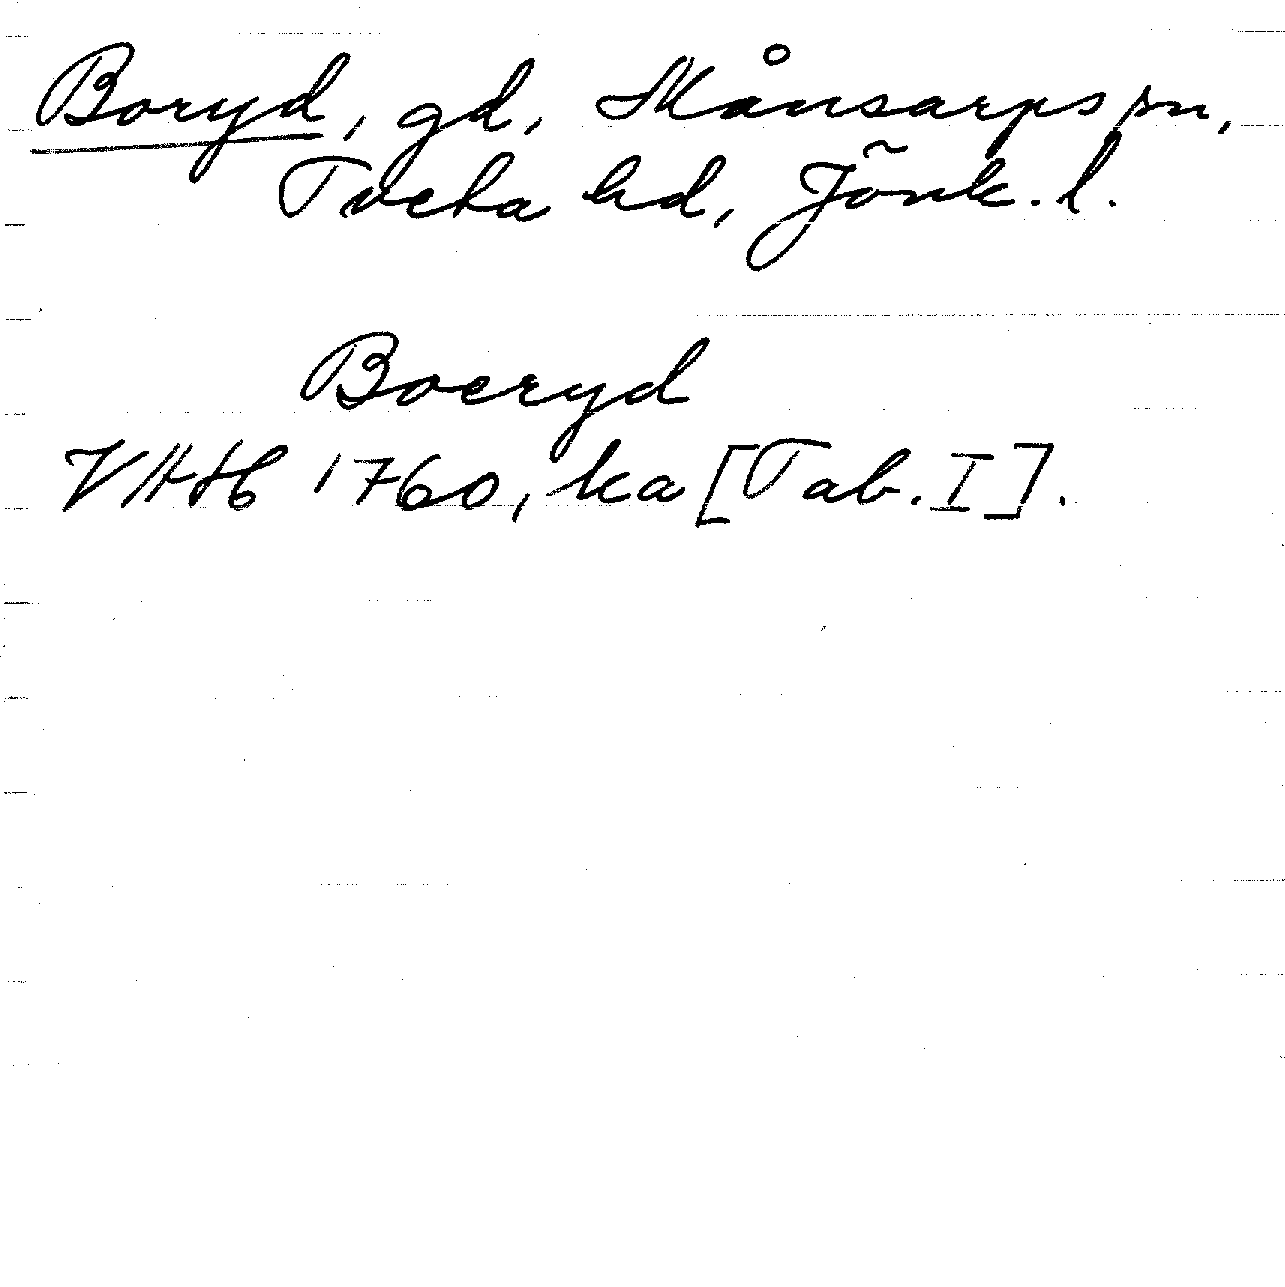 Boryd, gd, Månsarps sn,
Tveta hd, Jönk. l.
Boeryd
VHAH 1760, ka [Tab. I].